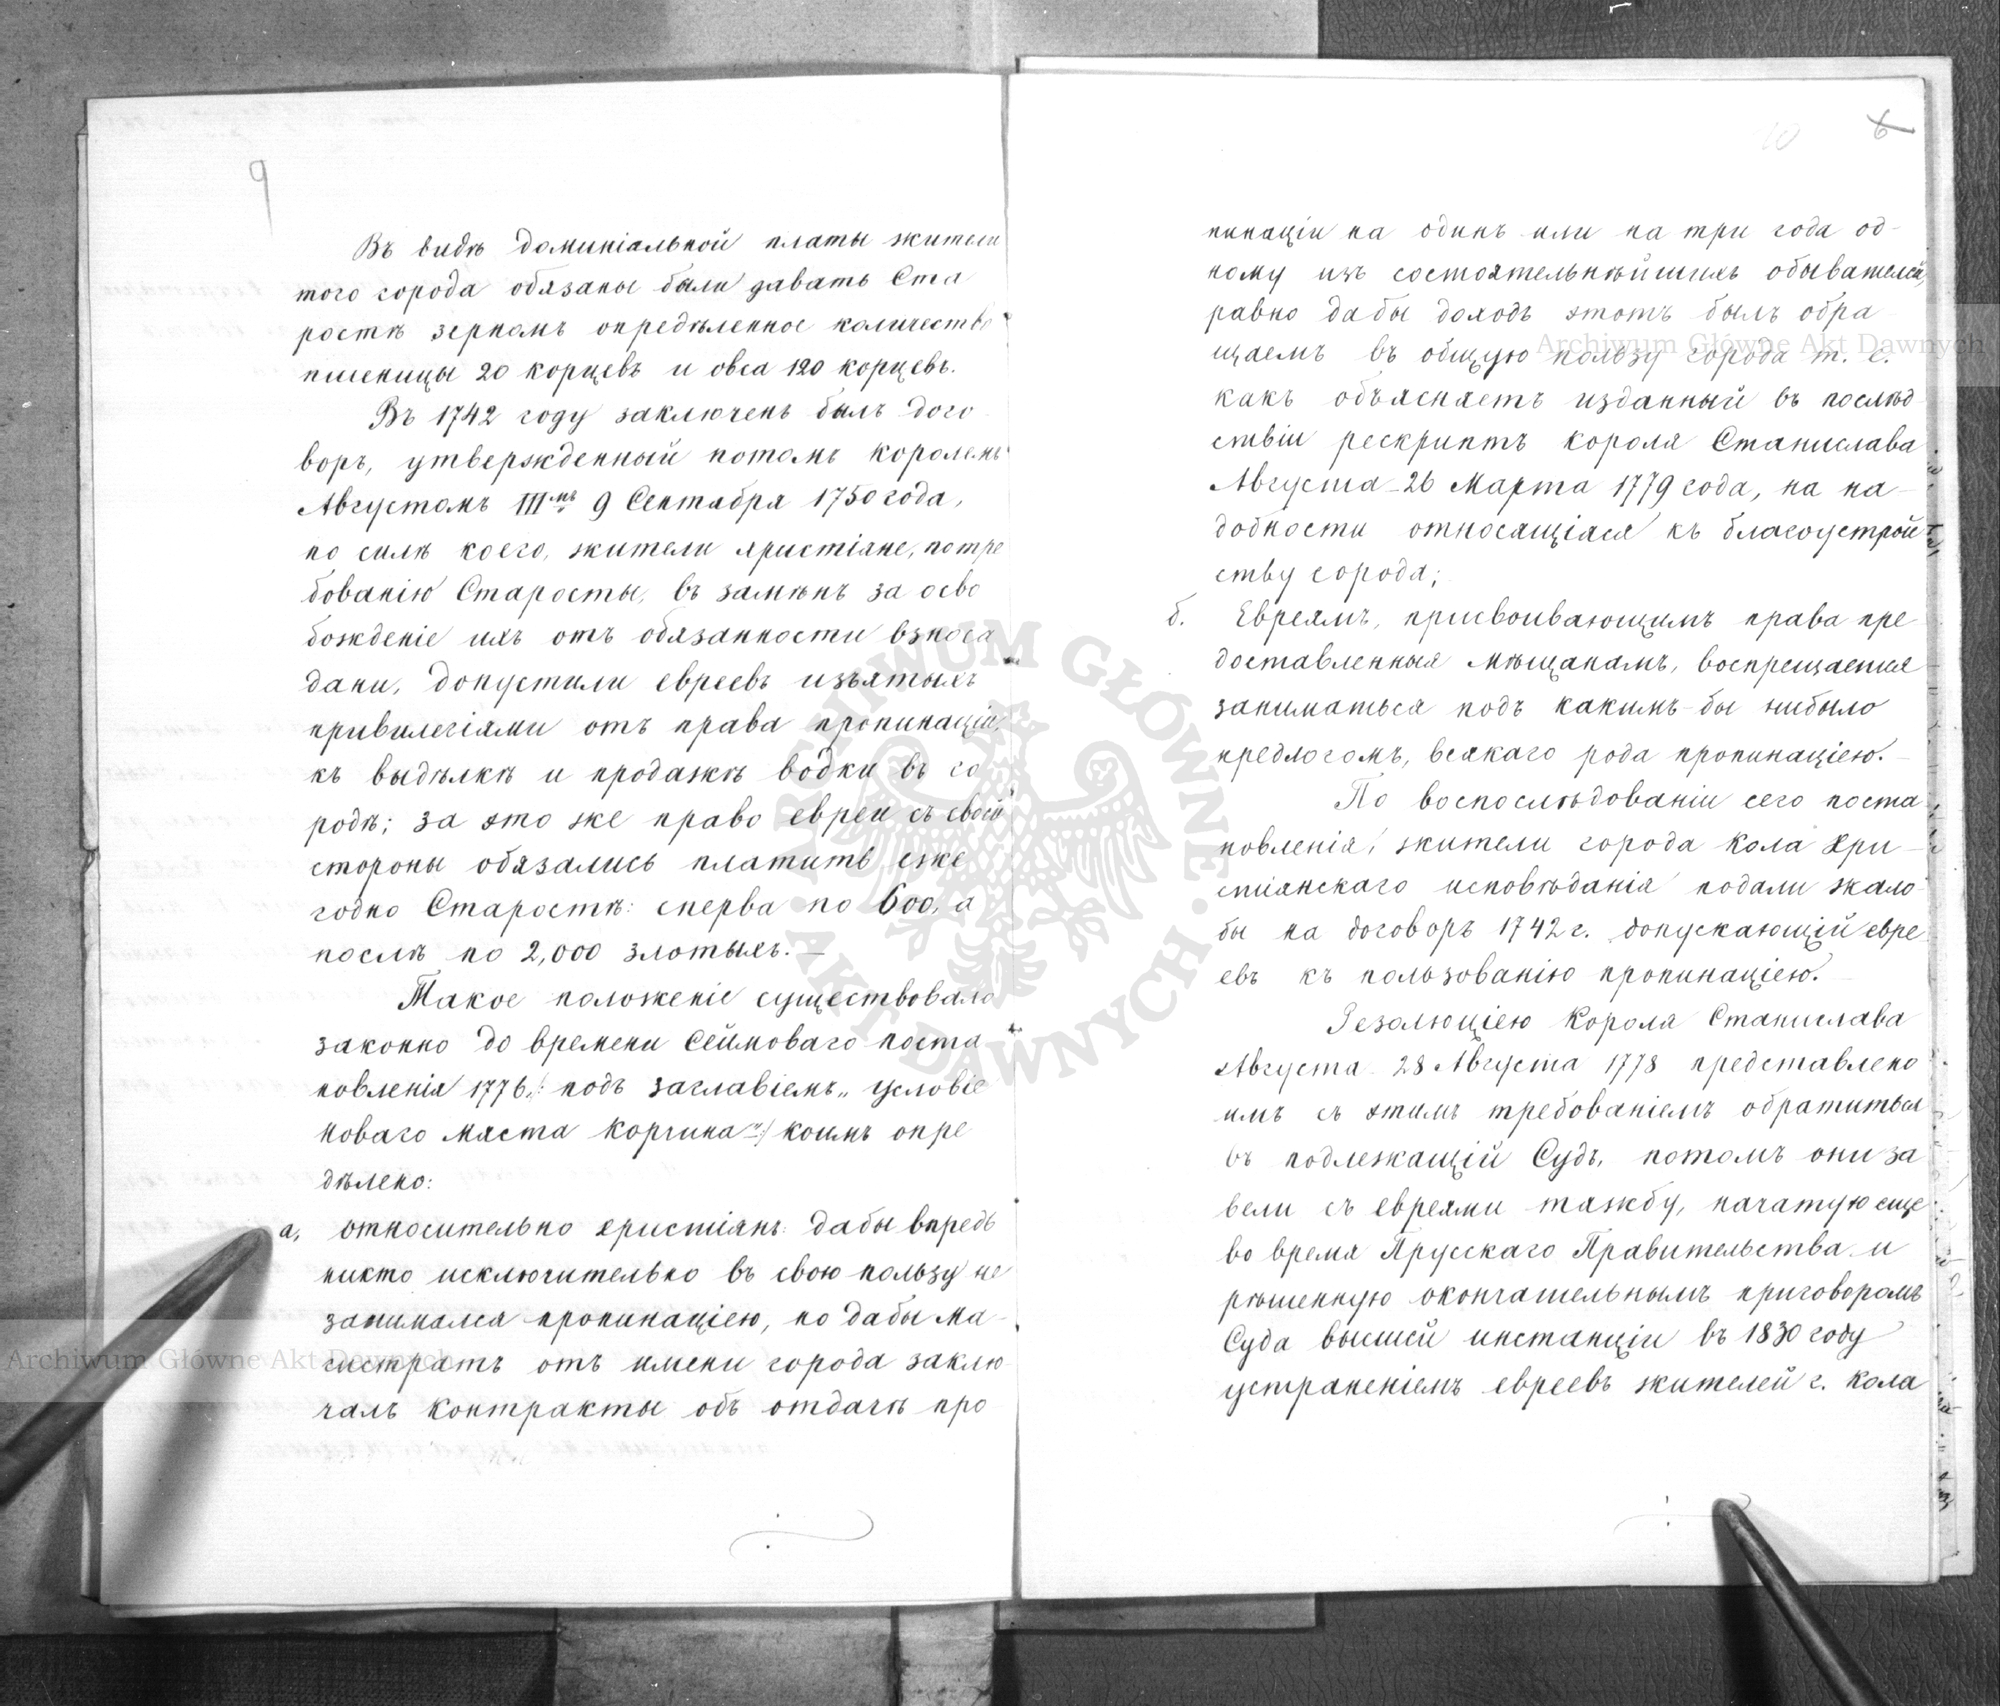 9
Въ видѣ доминіальной платы жители
того города обязаны были давать Ста
ростѣ зерномъ опредѣленное количество
пшеницы 20 корцевъ и овса 120 корцевъ.
Въ 1742 году заключенъ былъ дого
воръ, утвержденный потомъ королемъ
Августомъ III-мъ 9 Сентября 1750 года,
по силѣ коего, жители христіане, по тре
бованію Старосты, въ замѣнъ за осво
божденіе ихъ отъ обязанности взноса
дани, допустили евреевъ изъятыхъ
привилегіями отъ права пропинаціи,
къ выдѣлкѣ и продажѣ водки въ го
родѣ; за это же право евреи съ своей
стороны обязались платить еже
годно Старостѣ: сперва по 600, а
послѣ по 2,000 злотыхъ. —
Такое положеніе существовало
законно до времени Сеймоваго поста
новленія 1776, /: подъ заглавіемъ „условіе
новаго мяста Корчина" :/ коимъ опре
дѣлено:
а, относительно христіянъ: дабы впредь
никто исключительно въ свою пользу не
занимался пропинаціею, но дабы Ма-
гистратъ отъ имени города заклю
чалъ контракты объ отдачѣ про
10 6
пинаціи на одинъ или на три года од-
ному изъ состоятельнѣйшихъ обывателей,
равно дабы доходъ этотъ былъ обра
щаемъ въ общую пользу города т. е.
какъ объясняетъ изданный въ послѣд
ствіи рескриптъ короля Станислава
Августа 26 Марта 1779 года, на на-
добности относящіяся къ благоустрой
ству города;
б. Евреямъ, присвоивающимъ права пре
доставленныя мѣщанамъ, воспрещается
заниматься подъ какимъ-бы нибыло
предлогомъ, всякаго рода пропинаціею. —
По воспослѣдованіи сего поста
новленія, жители города Кола хри-
стіянскаго исповѣданія подали жало
бы на договоръ 1742 г. допускающій евре
евъ къ пользованію пропинаціею. —
Резолюціею Короля Станислава
Августа 28 Августа 1778 представлено
имъ съ этимъ требованіемъ обратиться
въ подлежащій Судъ, потомъ они за
вели съ евреями тяжбу, начатую еще
во время Прусскаго Правительства и
рѣшенную окончательнымъ приговоромъ
Суда высшей инстанціи въ 1830 году
устраненіемъ евреевъ жителей г. Кола
ARCHIWUM GŁÓWNE AKT DAWNYCH
Archiwum Główne Akt Dawnych
Archiwum Główne Akt Dawnych